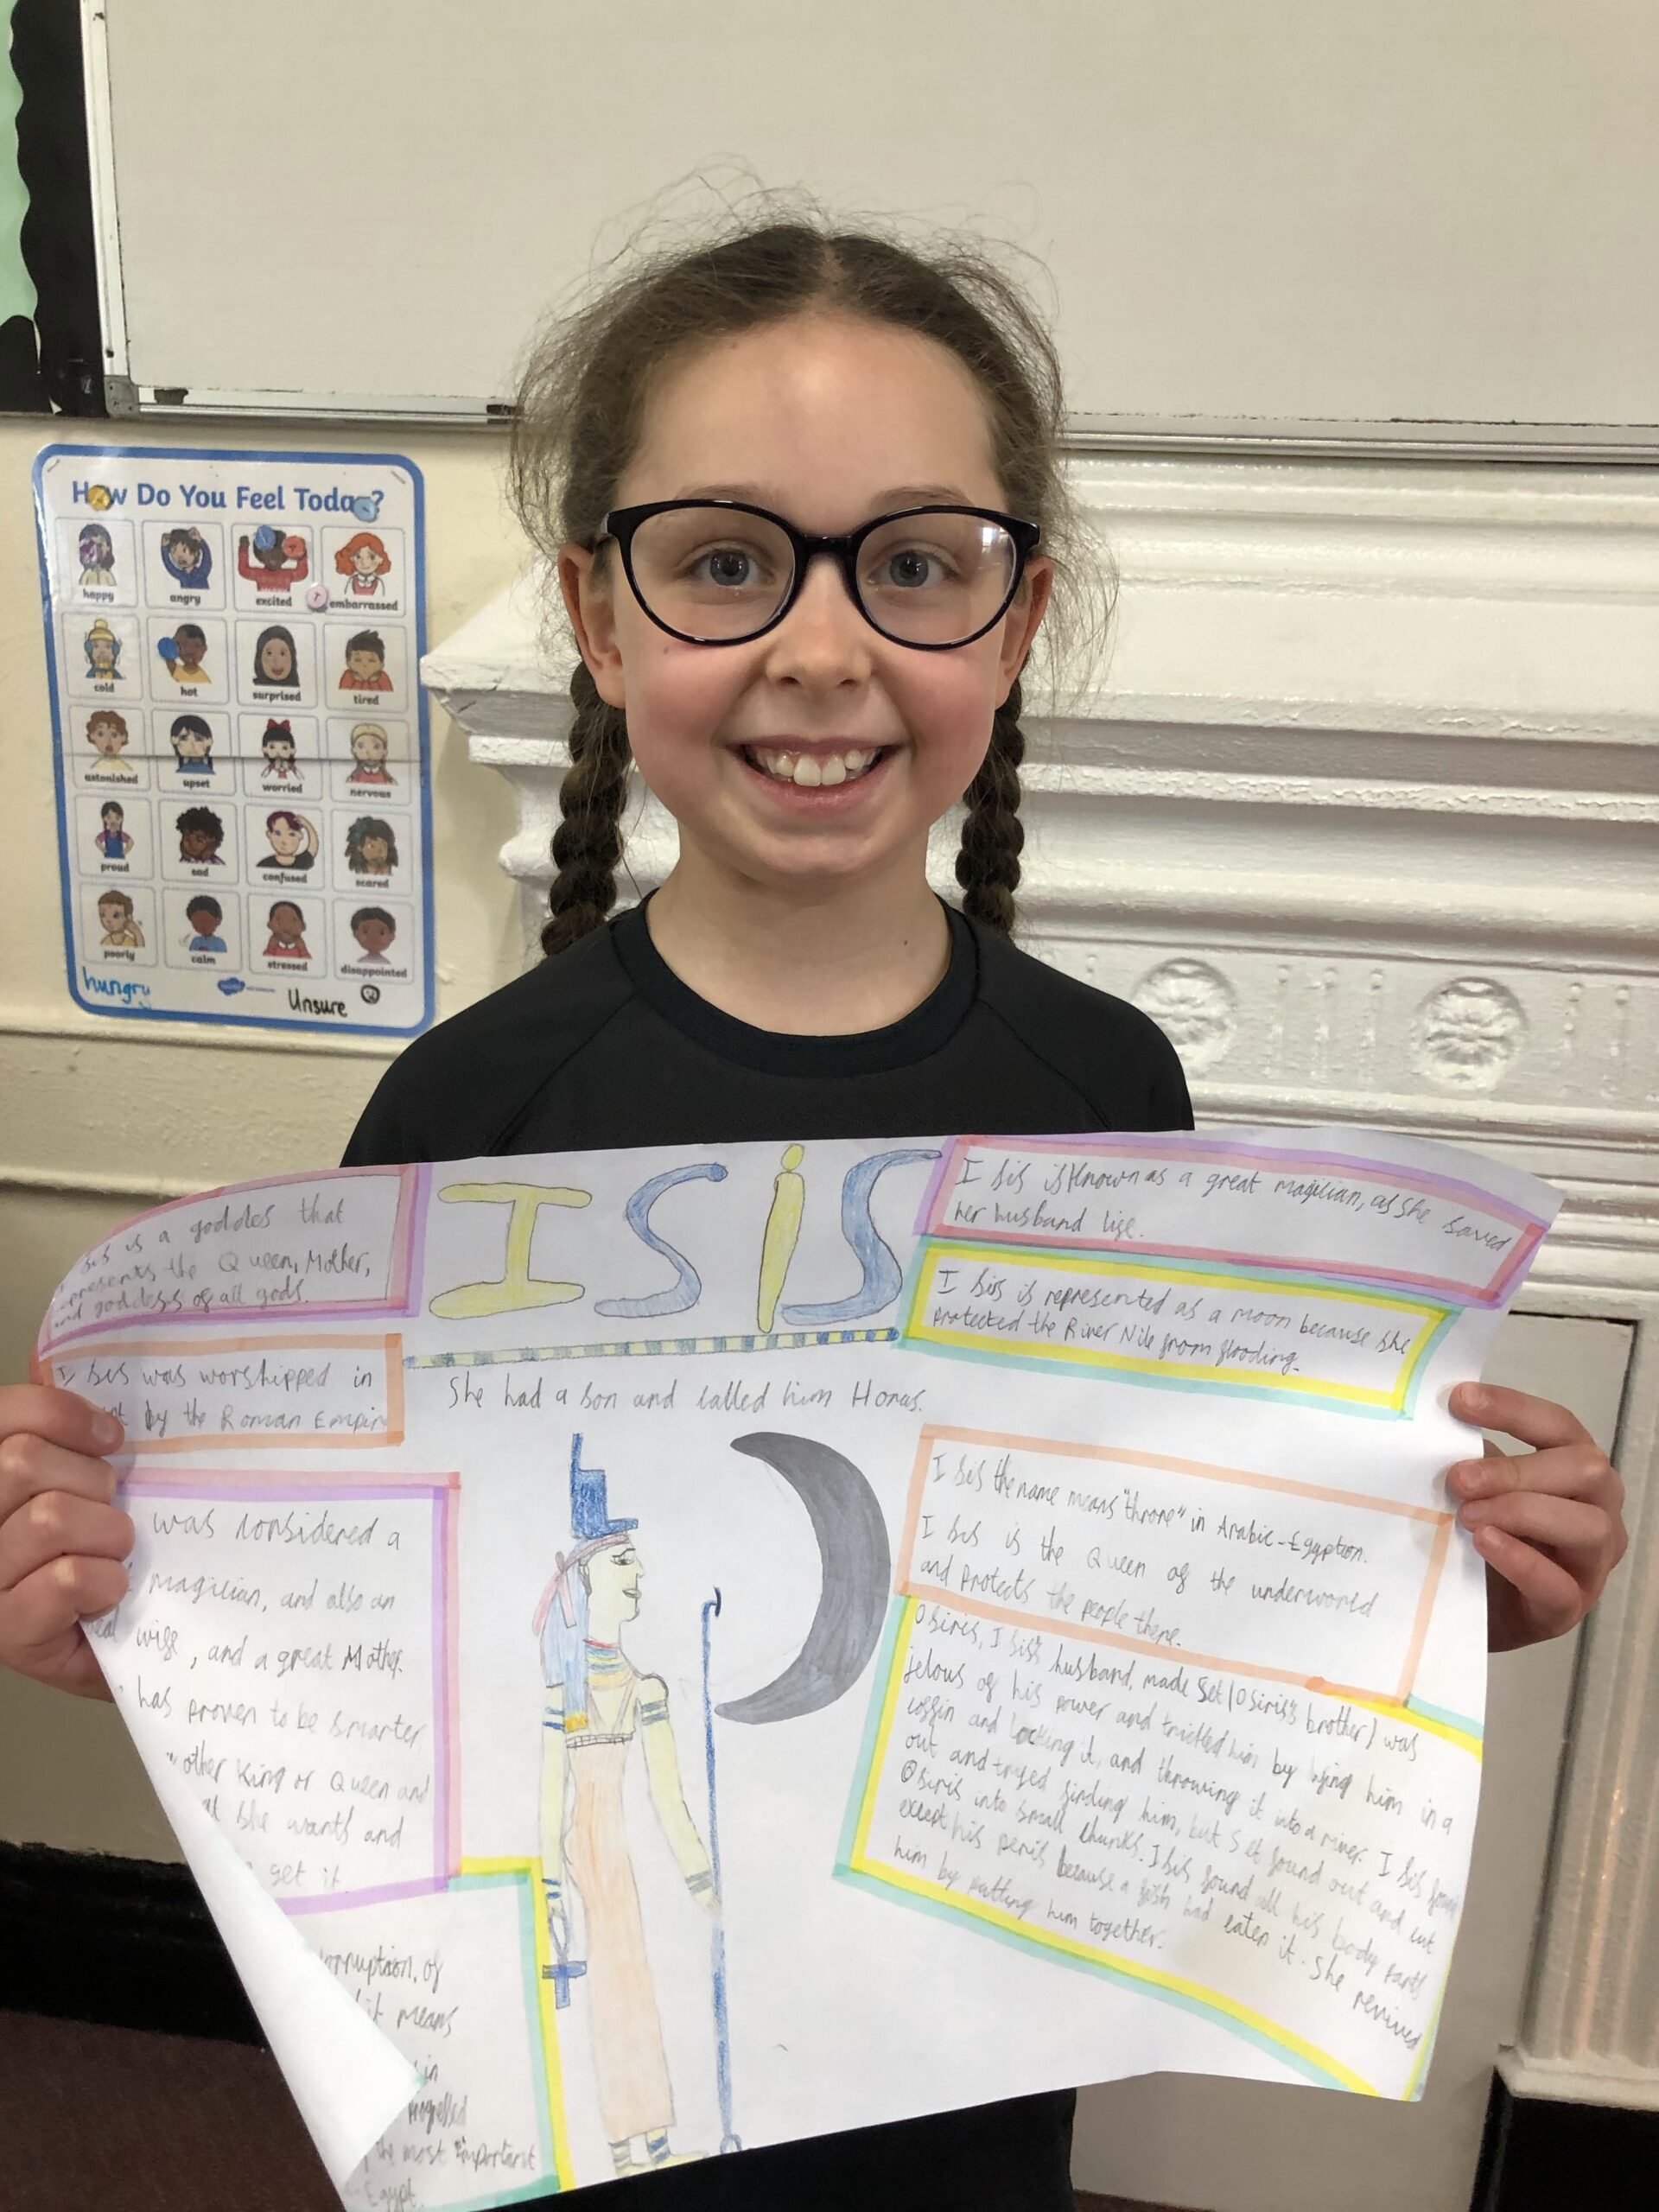 How Do You Feel Today?
happy
angry
excited
embarrassed
cold
hot
surprised
tired
astonished
upset
worried
nervous
proud
sad
confused
scared
poorly
calm
stressed
disappointed
hungry
Unsure
ISiS
is a goddes that
the Queen, Mother,
and goddess of all gods.
Isis was worshipped in
by the Roman Empire
was considered a
magician, and also an
wife, and a great Mother.
has proven to be smarter
other King or Queen and
she wants and
get it.
corruption, of
it means
in
the most important
Egypt.
She had a son and called him Horus.
Isis is known as a great magician, as she saved
her husband life.
Isis is represented as a moon because she
protected the River Nile from flooding.
Isis the name means "throne" in Arabic-Egyption.
Isis is the Queen of the underworld
and protects the people there.
Osiris, Isis's husband, made Set (Osiris's brother) was
jelous of his power and tricked him by lying him in a
coffin and locking it, and throwing it into a river. Isis found
out and tryed finding him, but Set found out and cut
Osiris into small chunks. Isis found all his body parts
except his penis because a fish had eaten it. She revived
him by putting him together.